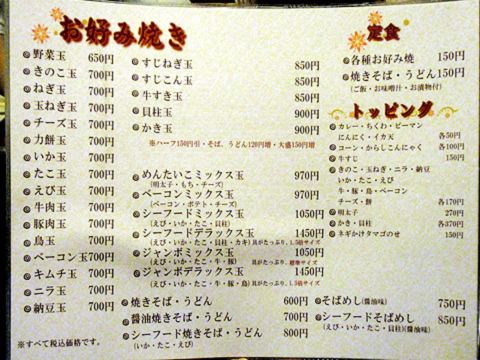 お好み焼き
野菜玉 650円
きのこ玉 700円
ねぎ玉 700円
玉ねぎ玉 700円
チーズ玉 700円
力餅玉 700円
いか玉 700円
たこ玉 700円
えび玉 700円
牛肉玉 700円
豚肉玉 700円
鳥玉 700円
ベーコン玉 700円
キムチ玉 700円
ニラ玉 700円
納豆玉 700円
※すべて税込価格です。
すじねぎ玉 850円
すじこん玉 850円
牛すき玉 850円
貝柱玉 900円
かき玉 900円
※ハーフ150円引・そば、うどん120円増・大盛150円増
めんたいこミックス玉 970円
(明太子・もち・チーズ)
ベーコンミックス玉 970円
(ベーコン・ポテト・チーズ)
シーフードミックス玉 1050円
(えび・いか・たこ・貝柱)
シーフードデラックス玉 1450円
(えび・いか・たこ・貝柱・カキ) 具がたっぷり、1.5倍サイズ
ジャンボミックス玉 1050円
(えび・いか・たこ・牛・豚) 具がたっぷり、標準サイズ
ジャンボデラックス玉 1450円
(えび・いか・たこ・牛・豚・鳥) 具がたっぷり、1.5倍サイズ
焼きそば・うどん 600円
醤油焼きそば・うどん 700円
シーフード焼きそば・うどん 800円
(いか・たこ・えび)
定食
各種お好み焼 150円
焼きそば・うどん 150円
(ご飯・お味噌汁・お漬物付)
トッピング
カレー・ちくわ・ピーマン
にんにく・イカ天 各50円
コーン・からしこんにゃく 各100円
牛すじ 150円
きのこ・玉ねぎ・ニラ・納豆
いか・たこ・えび
牛・豚・鳥・ベーコン
チーズ・餅 各170円
明太子 270円
かき・貝柱 各370円
ネギかけタマゴのせ 150円
そばめし(醤油味) 750円
シーフードそばめし 850円
(えび・いか・たこ・貝柱)(醤油味)